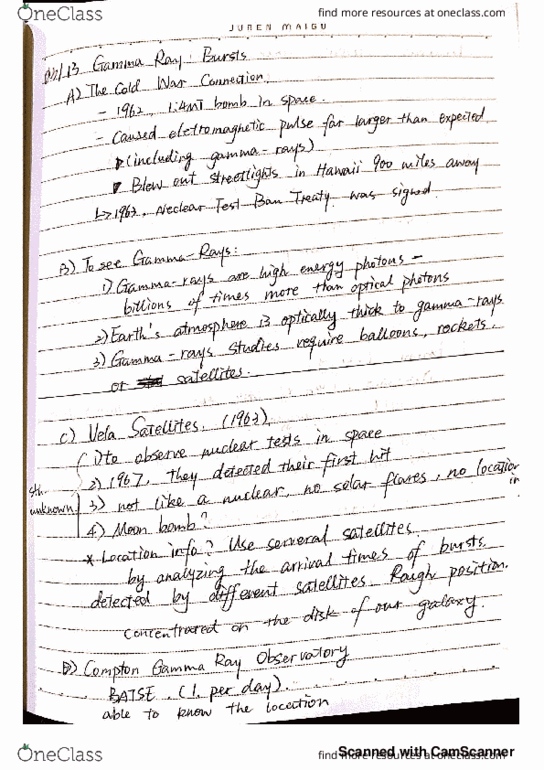 OneClass
find more resources at oneclass.com
JUREN MAIGU
13 Gamma Ray Bursts
A) The Cold War Connection.
- 1962, 1.4MT bomb in space.
- Caused eletromagnetic pulse far larger than expected
(including gamma-rays)
Blew out streetlights in Hawaii 900 miles away
↳ 1963, Neclear Test Ban Treaty was signed.
B) To see Gamma-Rays:
1) Gamma-rays are high energy photons -
billions of times more than optical photons
2) Earth's atmosphere is optically thick to gamma-rays
3) Gamma-rays studies require balloons, rockets,
or satellites.
C) Vela Satellites. (1963)
1) to observe nuclear tests in space
2) 1967, they detected their first hit
3) not like a nuclear, no solar flares, no location in
sth unknown
4) Moon bomb?
* Location info? Use serveral satellites
by analyzing the arrival times of bursts
detected by different satellites. Rough position.
concentrated on the disk of our galaxy.
D) Compton Gamma Ray Observatory
BATSE. (1 per day).
able to know the location
OneClass
find more resources at oneclass.com
Scanned with CamScanner